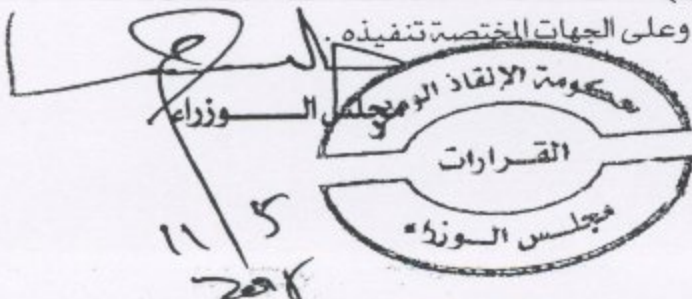 وعلى الجهات المختصة تنفيذه .
مجلس الــــوزراء
حكومة الإنقاذ الوطني
القــرارات
مجلس الــوزراء